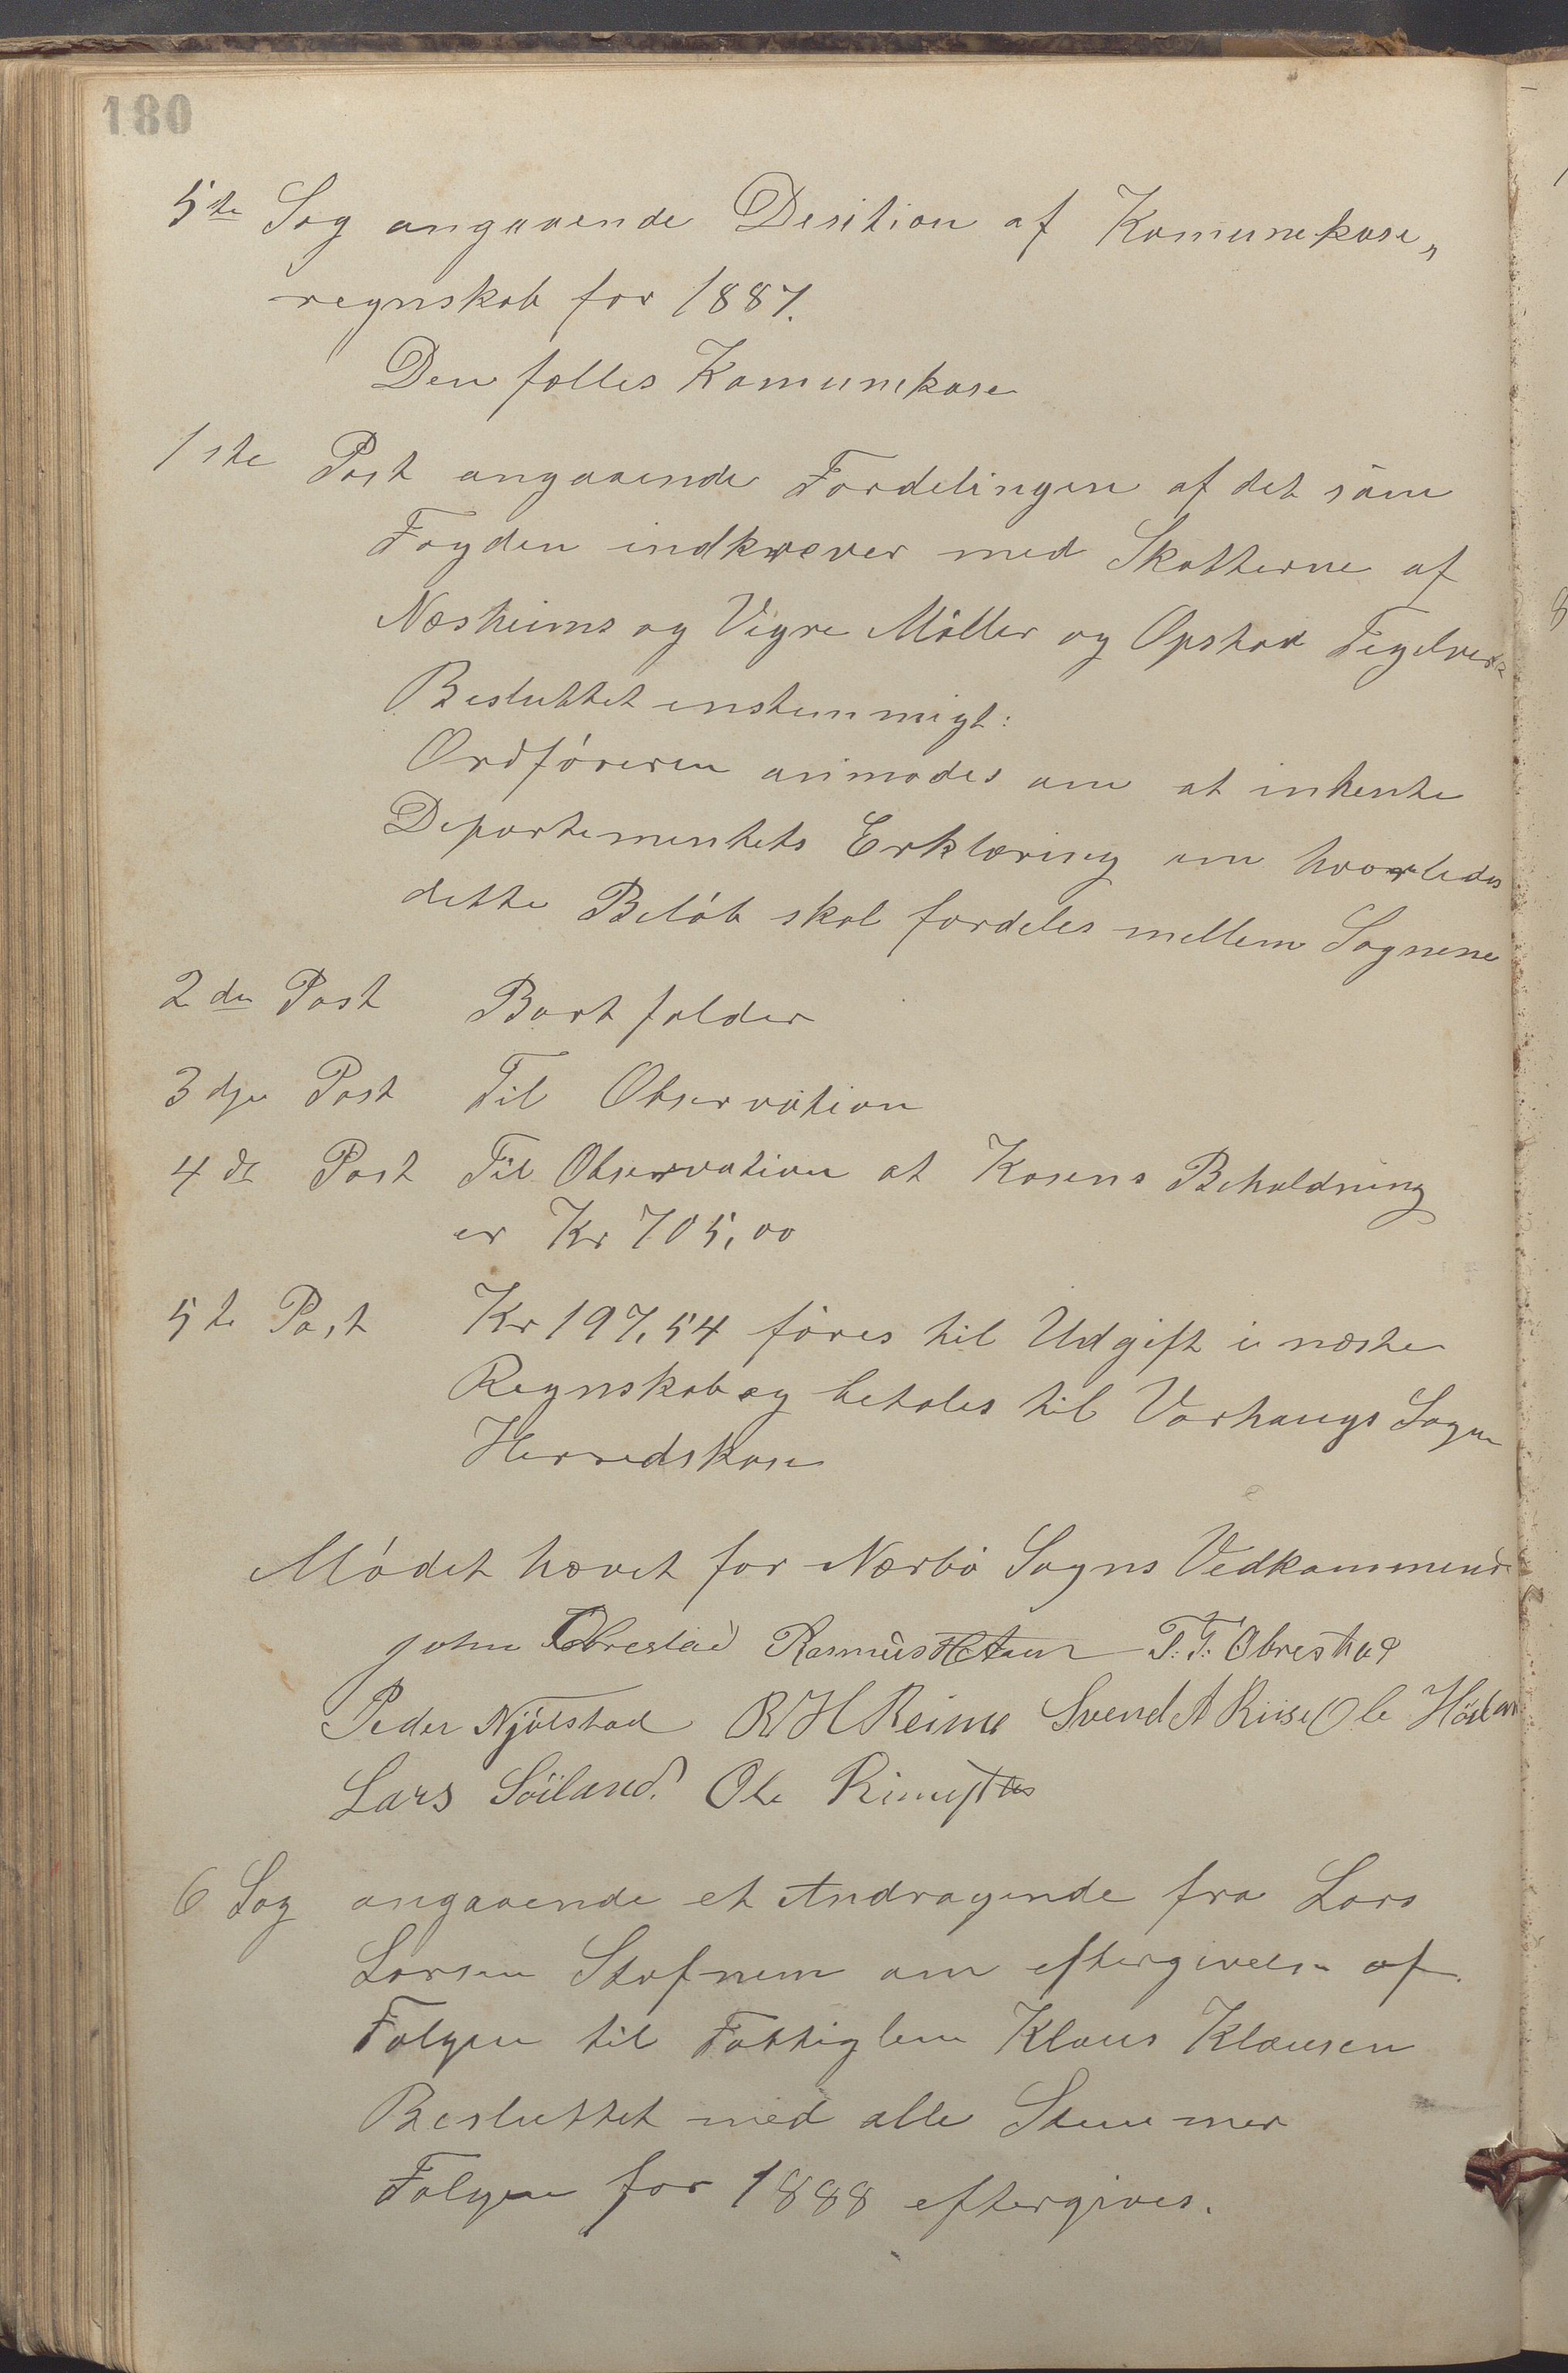 180
5te Sag angaaende Desition af Komunekase„
regnskab for 1887.
Den fælles Komunekase
1ste Post angaaende Fordelingen af det som
Fogden indkræver med Skatterne af
Næsheims og Vigre Møller og Opstad Tegelverk
Besluttet enstemmigt:
Ordføreren anmodes om at inhente
Departementets Erklæring om hvorledes
dette Beløb skal fordeles mellem Sognene
2den Post Bortfalder
3dje Post Til Observation
4de Post Til Observation at Kasens Beholdning
er Kr 705,00
5te Post Kr 197,54 føres til Udgift i næste
Regnskab og betales til Varhaugs Sogn
Herredskase
Mødet hævet for Nærbø Sogns Vedkommende
John Obrestad Rasmus T. T. Obrestad
Peder Njølstad R H Reime Svend A Riise Ole
Lars Söiland. Ole
6 Sag angaaende et Andragende fra Lars
Larsen Stafnem om eftergivelse af
Følgen til Fattiglem Klaus Klausen
Besluttet med alle Stemmer
Følgen for 1888 eftergives.